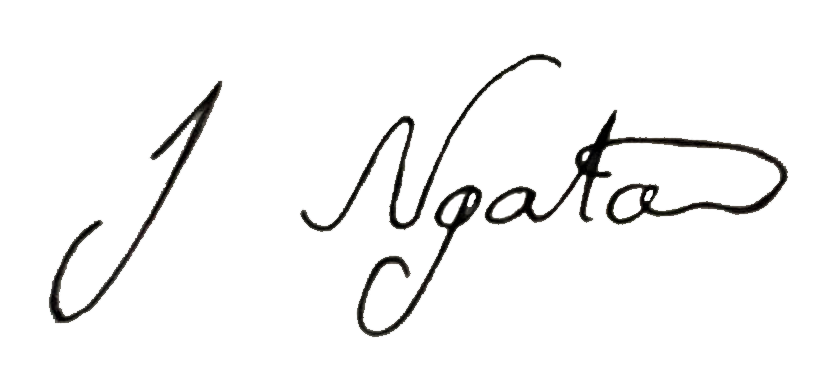 J Ngata